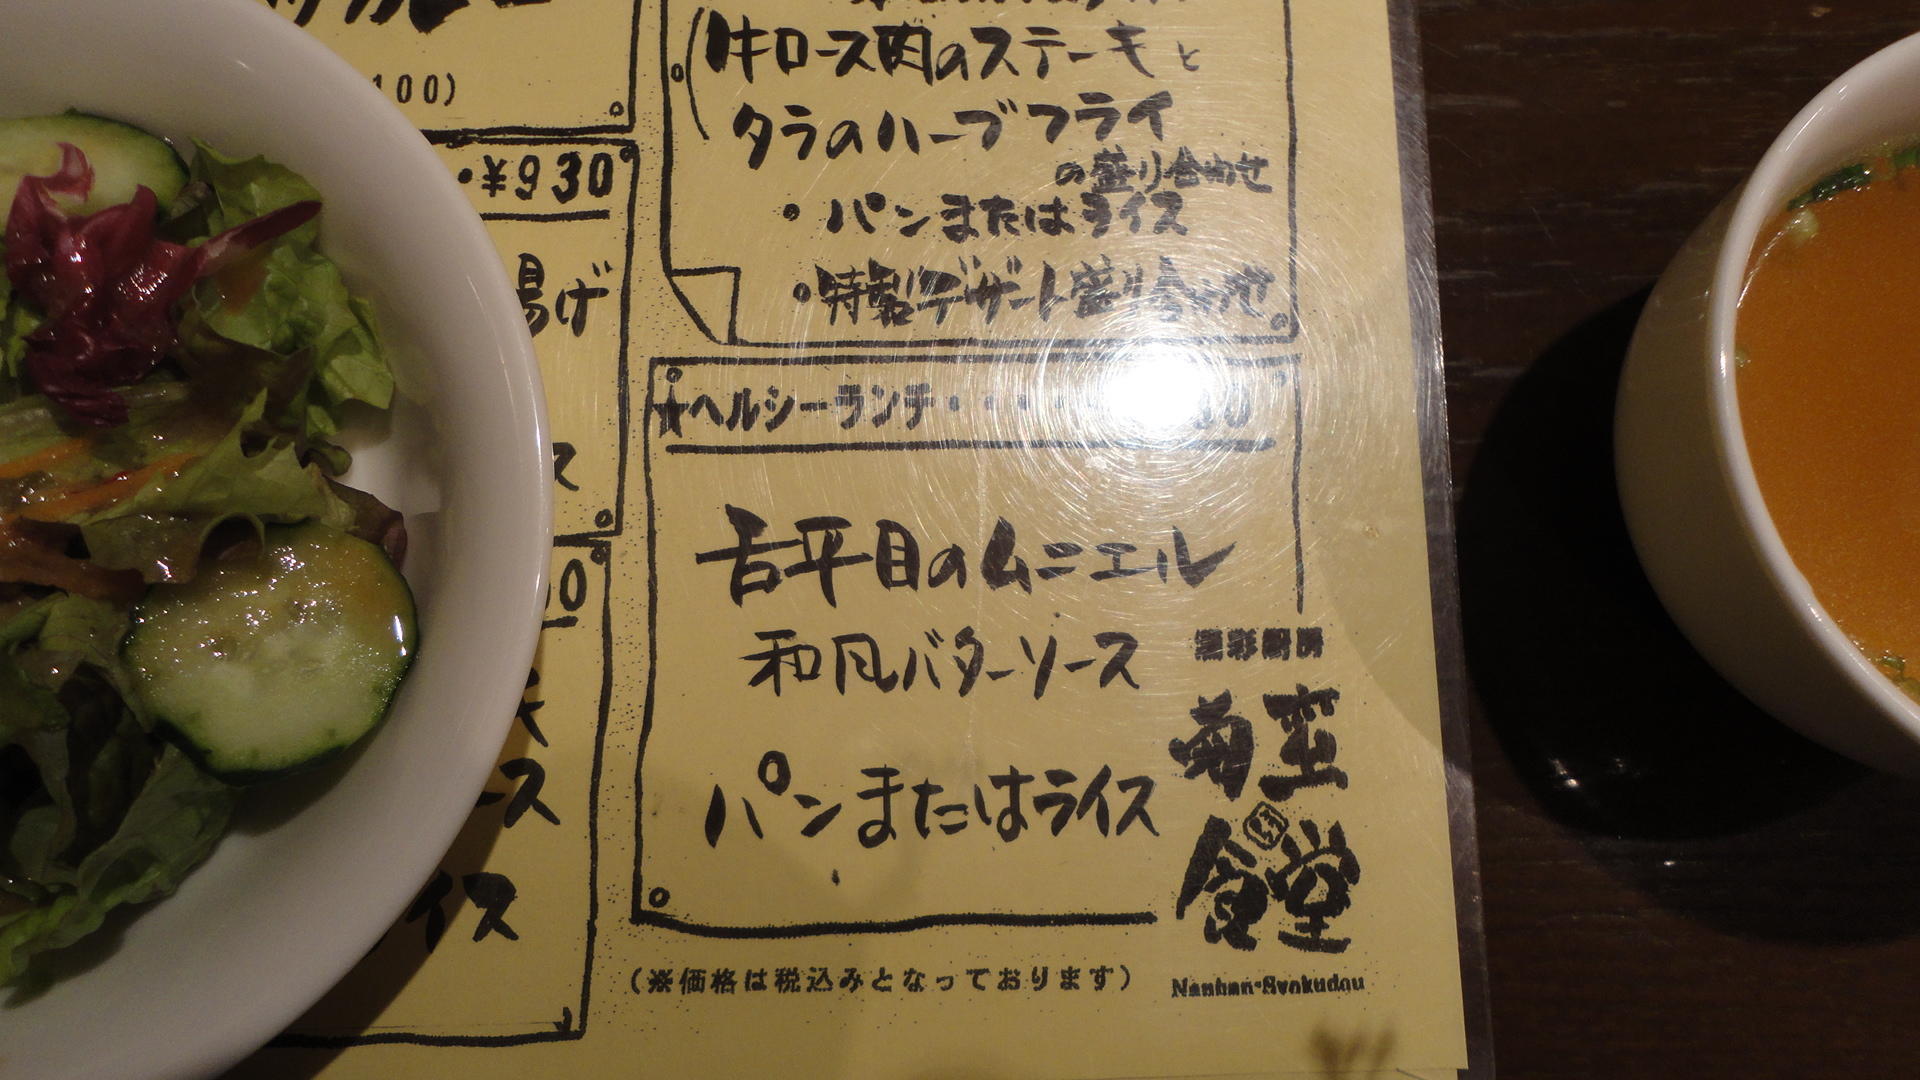 100)
・¥930
揚げ
ス
0
ース
イス
牛ロース肉のステーキと
タラのハーブフライ
の盛り合わせ
・パンまたはライス
・特製デザート盛り合わせ
★ヘルシーランチ・・・・
舌平目のムニエル
和風バターソース
パンまたはライス
南蛮
食堂
(※価格は税込みとなっております)
Nanban-Syokudou